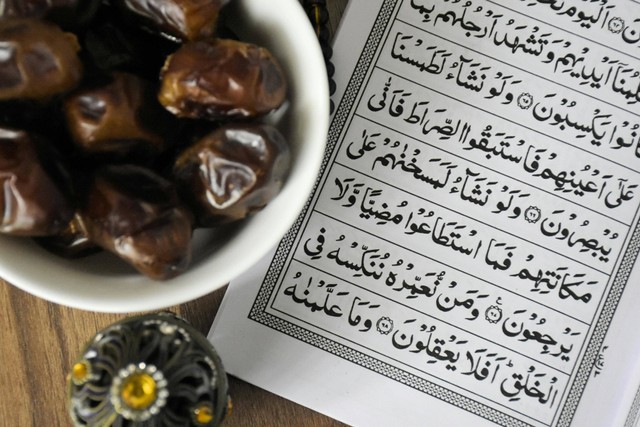 اَلْيَوْمَ
اَيْدِيْهِمْ وَتَشْهَدُ اَرْجُلُهُمْ بِمَا
كَانُوْا يَكْسِبُوْنَ ۝٦٥ وَلَوْ نَشَآءُ لَطَمَسْنَا
عَلٰٓى اَعْيُنِهِمْ فَاسْتَبَقُوا الصِّرَاطَ فَاَنّٰى
يُبْصِرُوْنَ ۝٦٦ وَلَوْ نَشَآءُ لَمَسَخْنٰهُمْ عَلٰى
مَكَانَتِهِمْ فَمَا اسْتَطَاعُوْا مُضِيًّا وَّلَا
يَرْجِعُوْنَ ۝٦٧ وَمَنْ نُّعَمِّرْهُ نُنَكِّسْهُ فِى
الْخَلْقِ اَفَلَا يَعْقِلُوْنَ ۝٦٨ وَمَا عَلَّمْنٰهُ